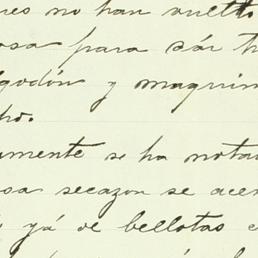 nes no han vuelto
osa para sár tr
lgodón y maquin
ho.
amente se ha notad
sa secazon se acer
yá de bellotas c